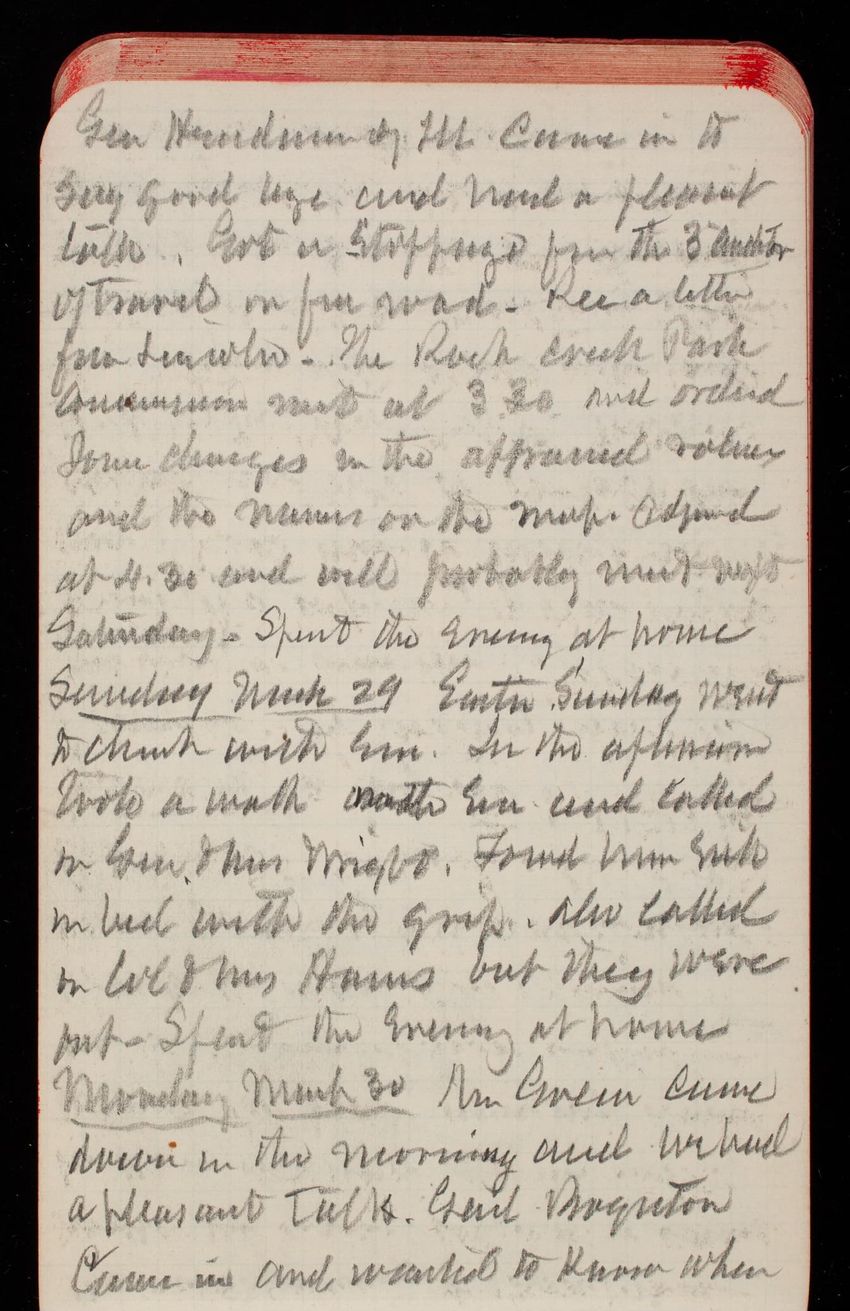 Gen Henderson of Ill Came in to
say good bye and had a pleasant
talk. Got a Stoppage from the 3 auditor
of travel on free road - Rec a letter
from Lincoln - The Rock Creek Park
Commission met at 3 30 and ordered
Some changes in the appraised values
and the names on the map. Adjournd
at 4.30 and will probably meet next
Saturday - Spent the Evening at home
Sunday March 29 Easter Sunday went
to church with Em. In the afternoon
took a walk with Em and called
on Gen. & Mrs Wright. Found him sick
in bed with the grip. Also called
on Col & Mrs Hains but they were
out - Spent the Evening at home
Monday March 30 Mr Green Came
down in the morning and we had
a pleasant Talk. Genl Boynton
Came in and wanted to know when